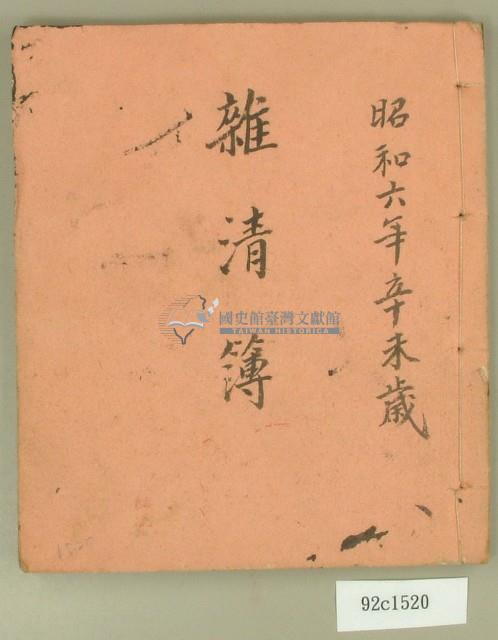 昭和六年辛未歲
雜清簿
國史館臺灣文獻館
TAIWAN HISTORICA
92c1520